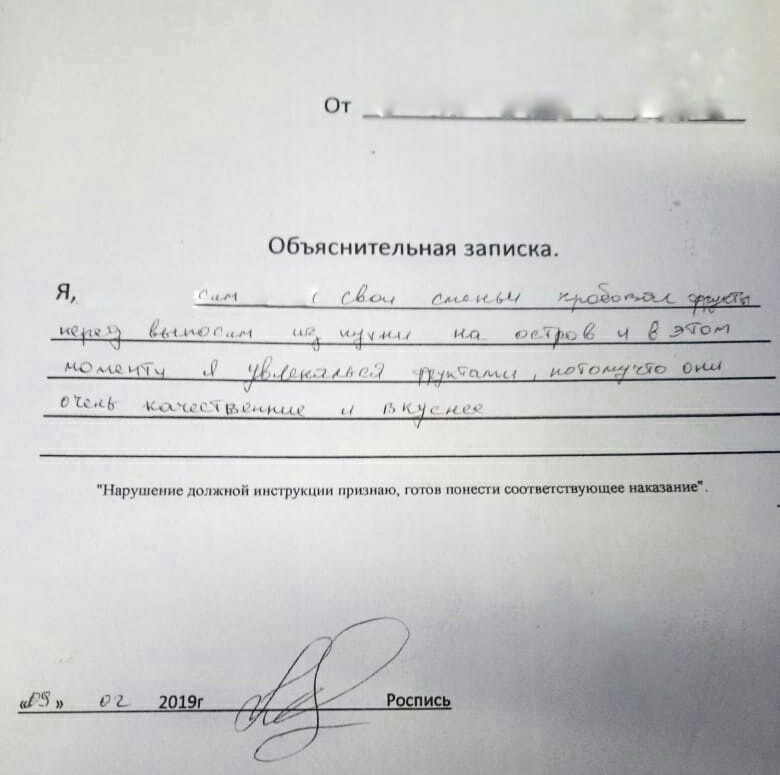 От
Объяснительная записка.
Я, сам с свои смены пробовал фрукты
перед выносим из кухни на остров и в этом
моменты я увлекалься фруктами, потому что они
очень качественние и вкуснее
"Нарушение должной инструкции признаю, готов понести соответствующее наказание".
«09» 02 2019г Роспись